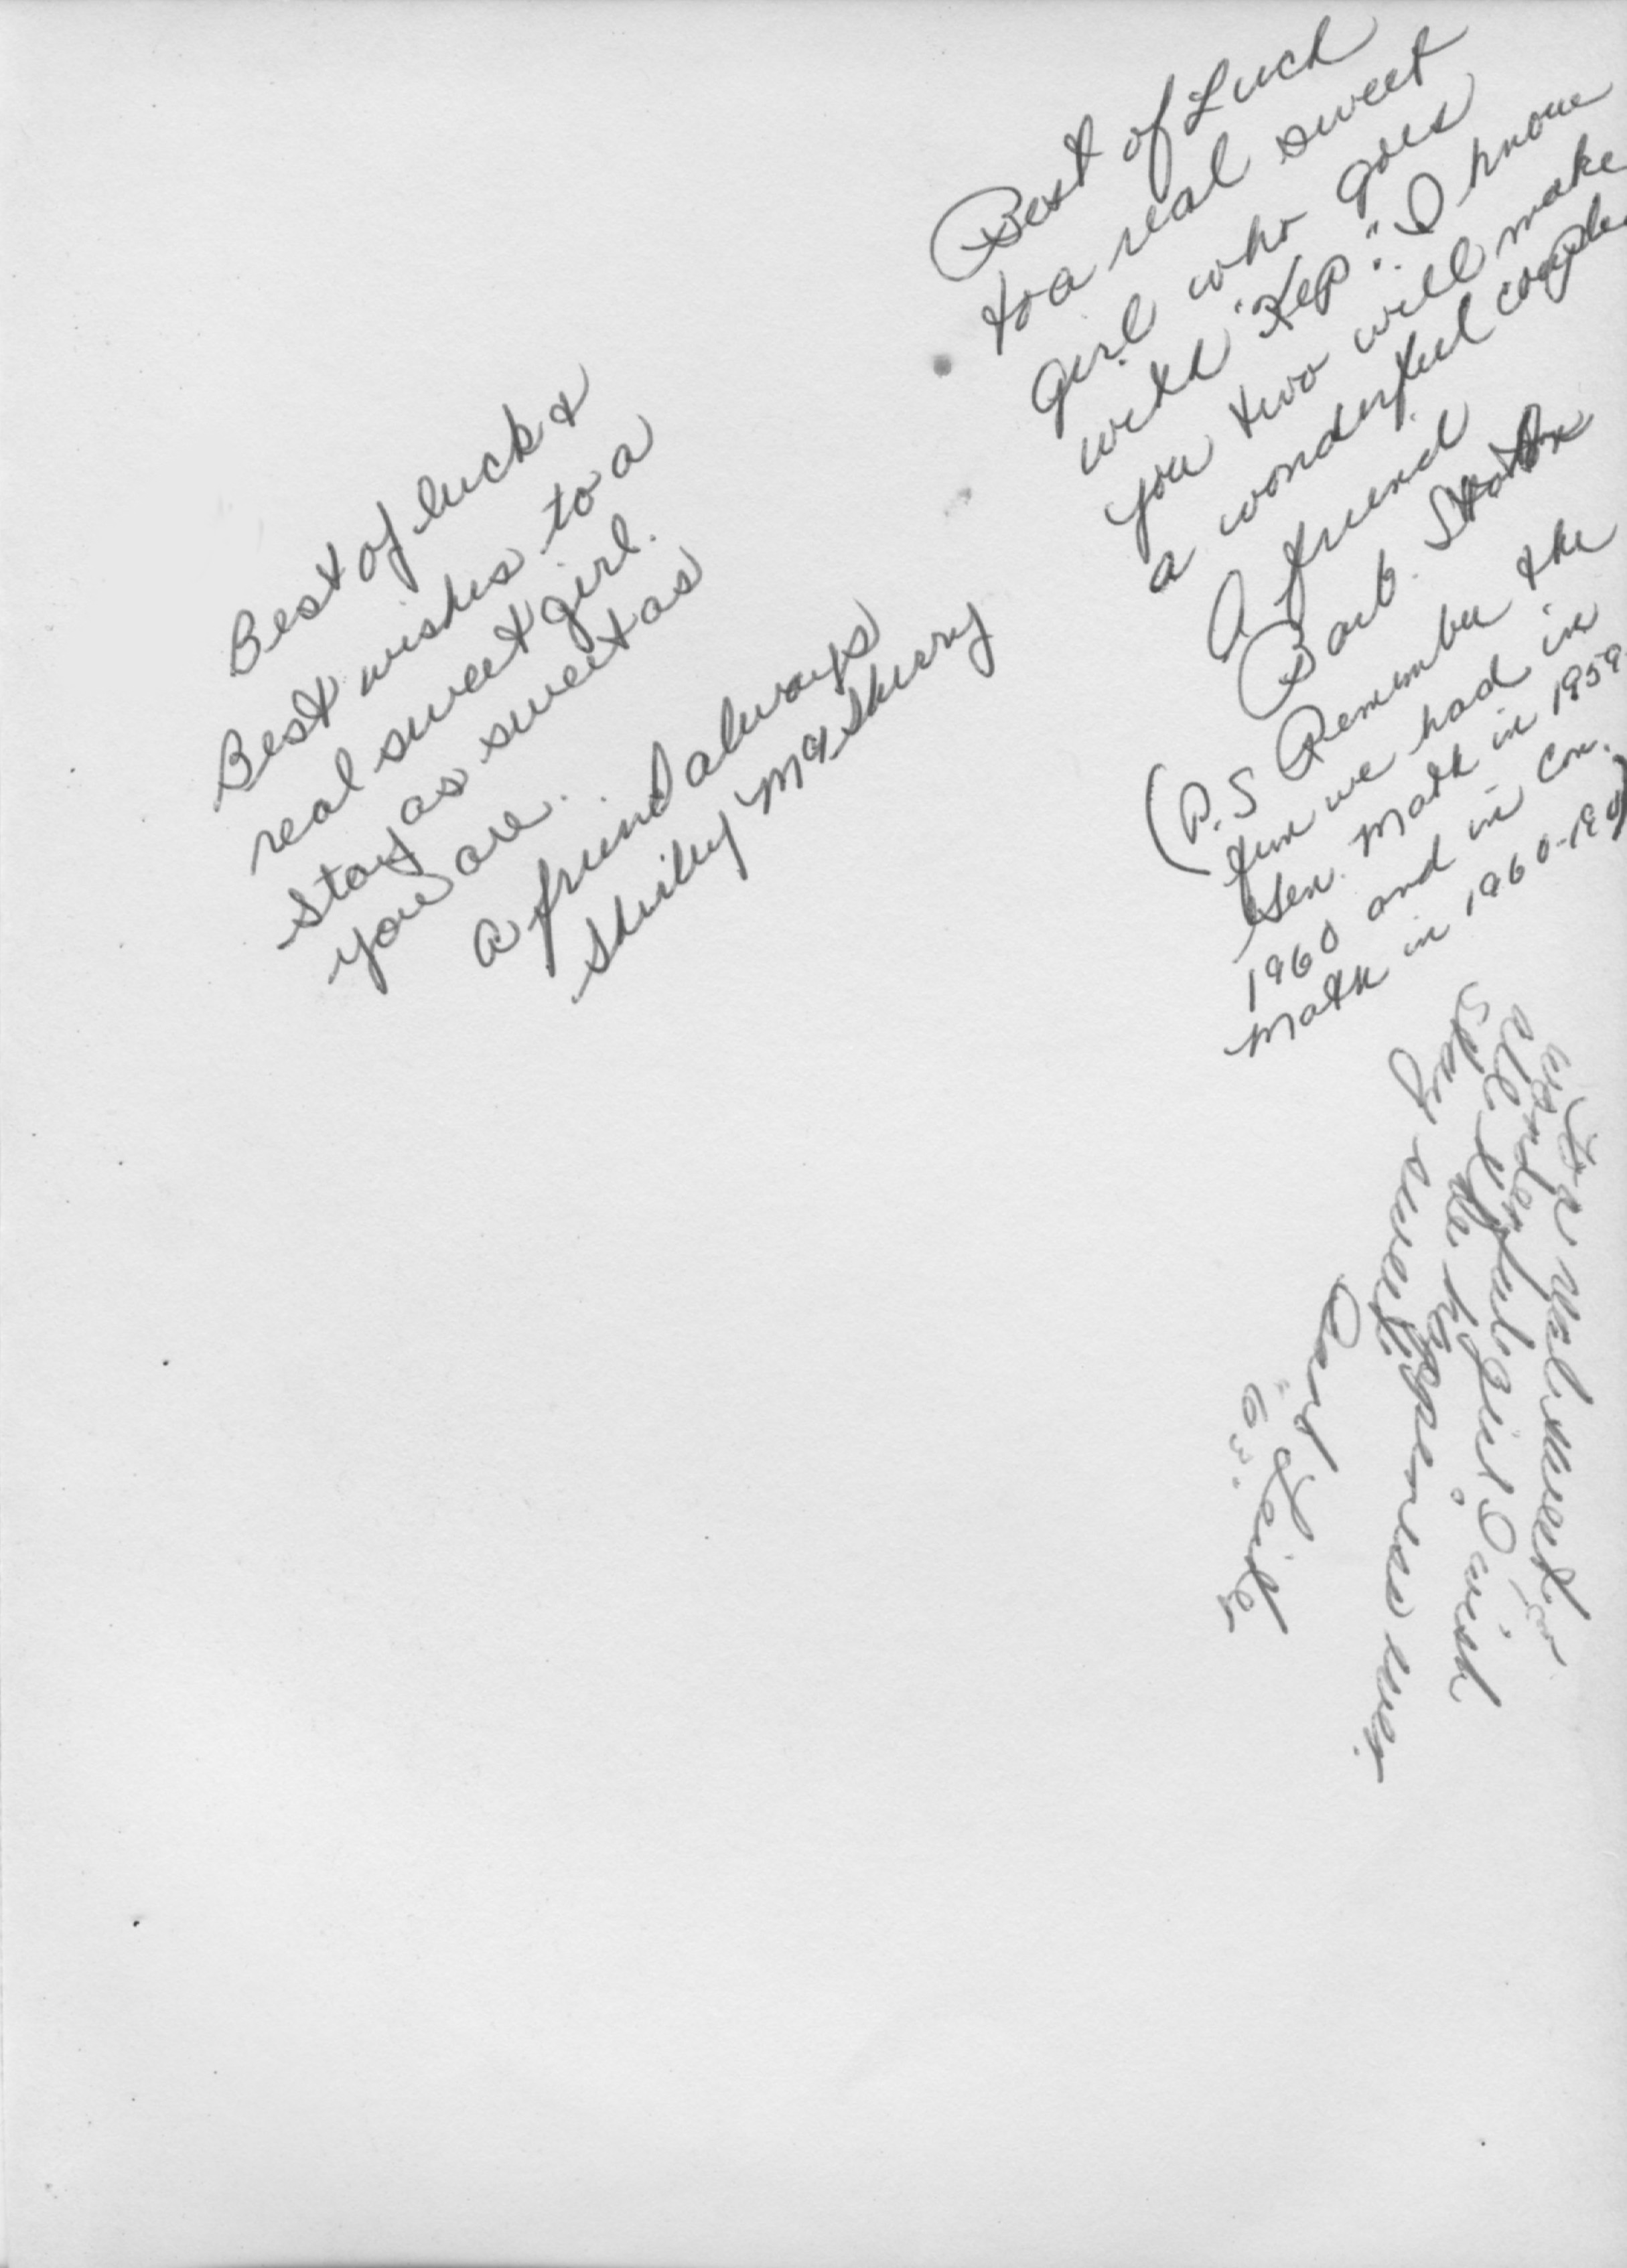 Best of luck &
Best wishes to a
real sweet girl.
Stay as sweet as
you are.
A friend always
Shirley McSkurry
Best of Luck
to a real sweet
girl who goes
with "Kep". I know
you two will make
a wonderful couple
A friend
Barb
(P.S Remember the
fun we had in
Gen. Math in 1959-
1960 and in Con.
Math in 1960-196
To a real sweet
wonderful girl I wish
all the happiness
Stay sweet.